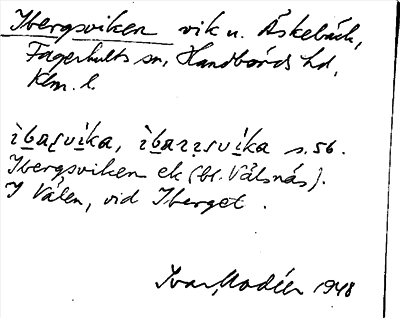 Ibergsviken vik u. Äskebäck,
Fagerhults sn, Handbörds hd,
Klm. l.
ìbaʂvíka, ìbarıʂvíka s. 56.
Ibergsviken ek (bl. Välsnäs).
I Välen, vid Iberget.
Ivar Modéer 1948